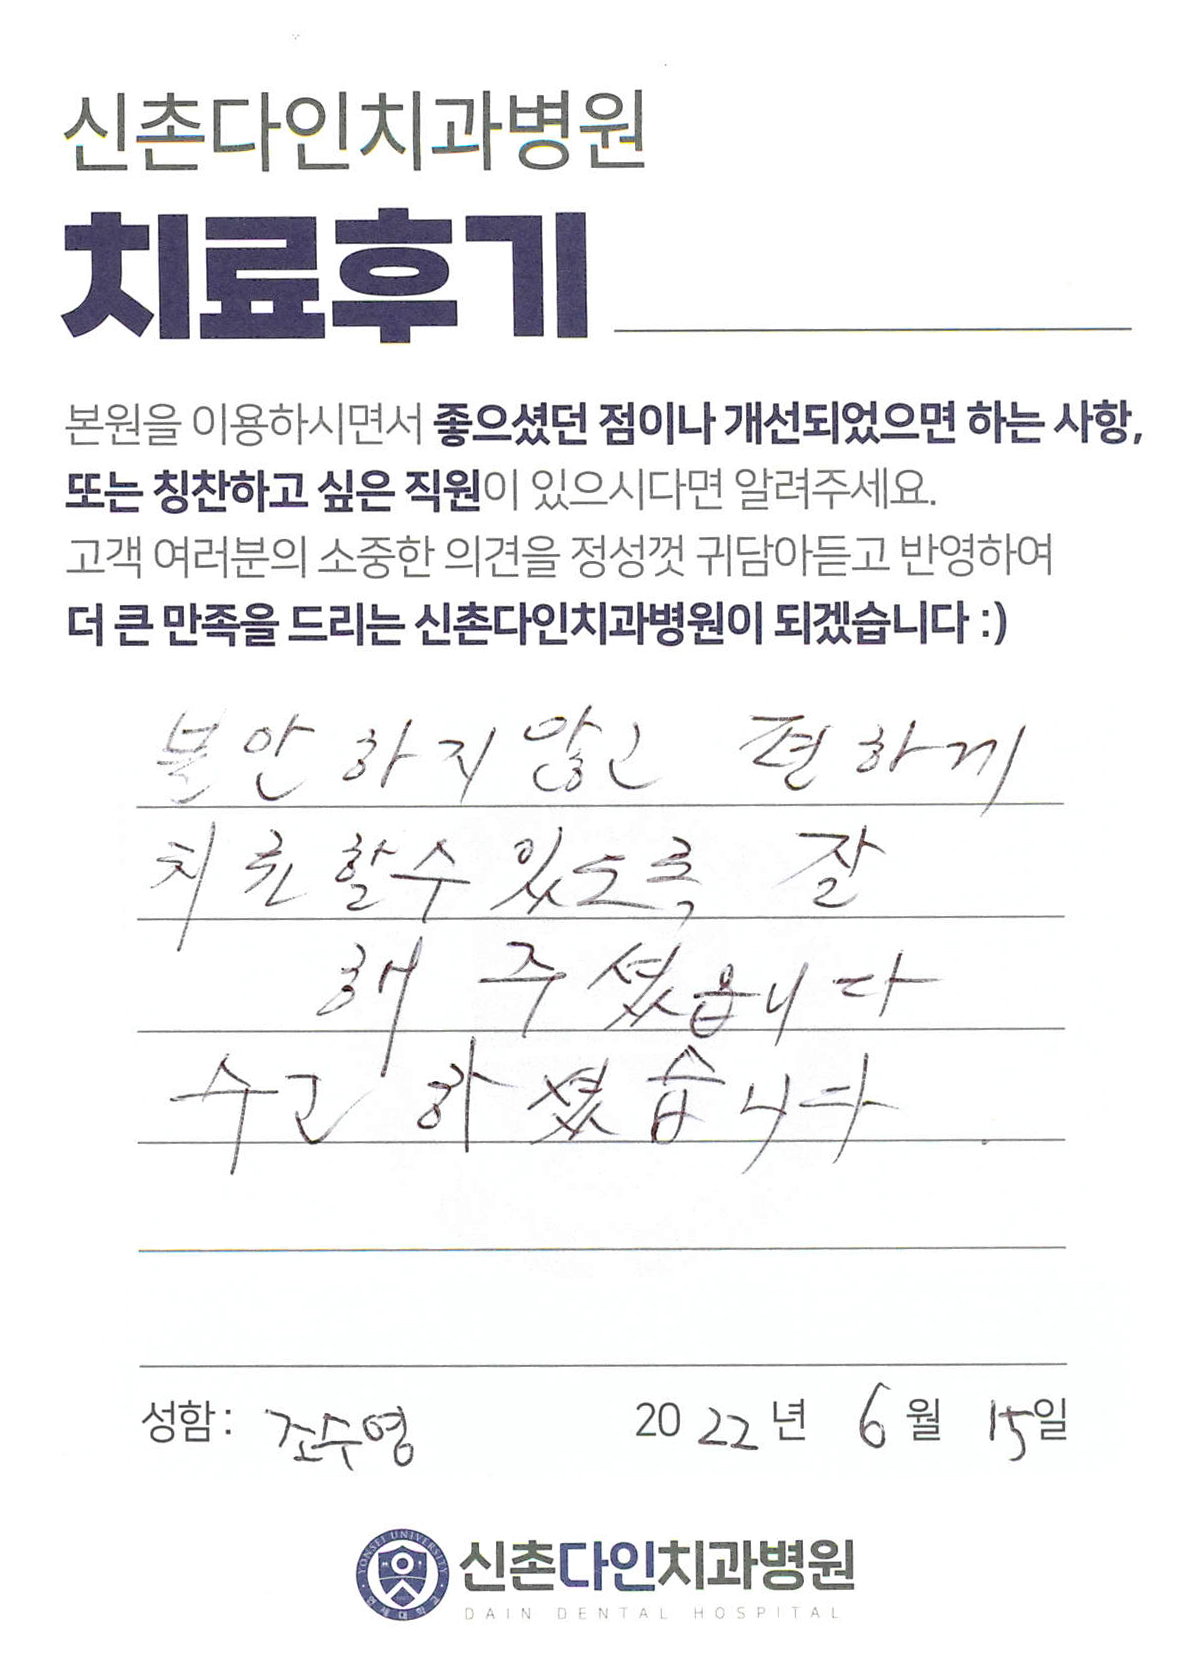 신촌다인치과병원
치료후기
본원을 이용하시면서 좋으셨던 점이나 개선되었으면 하는 사항,
또는 칭찬하고 싶은 직원이 있으시다면 알려주세요.
고객 여러분의 소중한 의견을 정성껏 귀담아듣고 반영하여
더 큰 만족을 드리는 신촌다인치과병원이 되겠습니다 :)
불안하지 않고 편하게
치료할수 있도록 잘
해 주셨읍니다
수고 하셨습니다.
성함: 조수영 2022년 6월 15일
YONSEI UNIVERSITY
연세대학교
신촌다인치과병원
DAIN DENTAL HOSPITAL